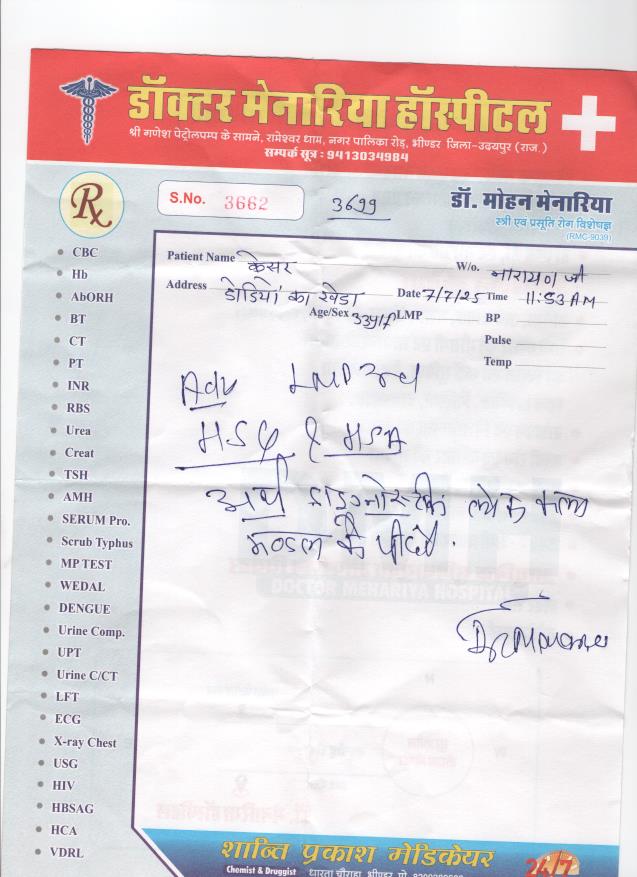 डॉक्टर मेनारिया हॉस्पीटल
श्री गणेश पेट्रोलपम्प के सामने, रामेश्वर धाम, नगर पालिका रोड़, भीण्डर जिला-उदयपुर (राज.)
सम्पर्क सूत्र : 9413034984
Rx
S.No. 3662
3699
डॉ. मोहन मेनारिया
स्त्री एवं प्रसूति रोग विशेषज्ञ
(RMC-9039)
Patient Name केसर W/o. नारायण जी
Address डोडियों का खेडा Date 7/7/25 Time 11:53 AM
Age/Sex 33y/F LMP BP
Pulse
Temp
CBC
Hb
AbORH
BT
CT
PT
INR
RBS
Urea
Creat
TSH
AMH
SERUM Pro.
Scrub Typhus
MP TEST
WEDAL
DENGUE
Urine Comp.
UPT
Urine C/CT
LFT
ECG
X-ray Chest
USG
HIV
HBSAG
HCA
VDRL
Adv LMP
HSG & HSA
अर्थ डाइग्नोस्टिक लोक कला
मण्डल के पीछे.
DOCTOR MENARIYA HOSPITAL
शान्ति प्रकाश मेडिकेयर
24/7
Chemist & Druggist धारता चौराहा, भीण्डर